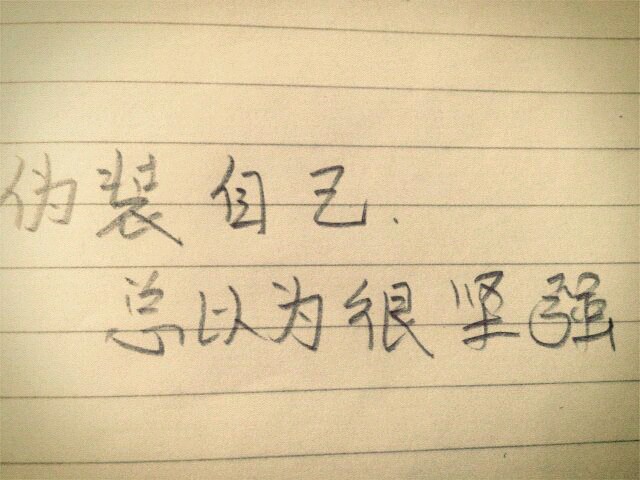 伪装自己.
总以为很坚强